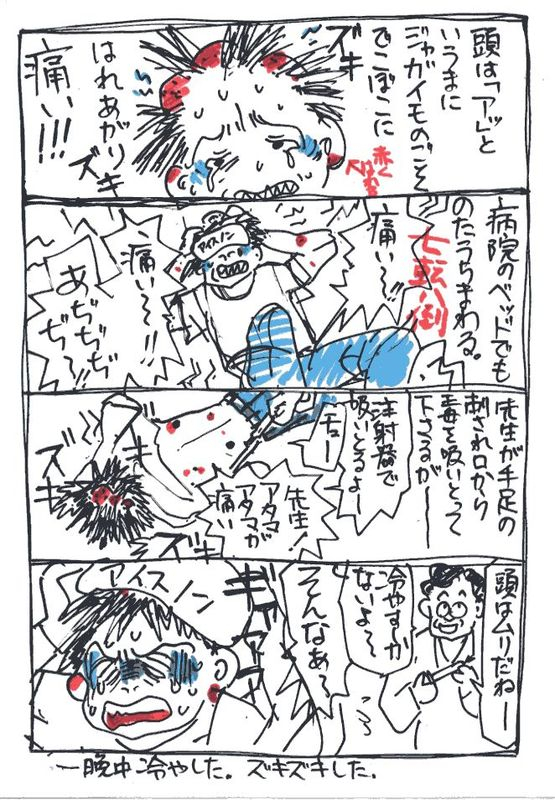 頭は「アッ」と
いうまに
ジャガイモのごそく
でこぼこに
赤く
はれ
ズキ
はれあがり
ズキ
痛い!!!
病院のベッドでも
のたうちまわる。
七転八倒
痛い〜!!
アイスノン
痛い〜!!
あぢぢぢ
ぢ〜
先生が手足の
刺され口から
毒を吸いとって
下さるが——
注射器で
吸いとるよー
チュー
先生!
アタマ
アタマが
痛い
ズキ
ズキ
ズキ
頭はムリだねー
冷やすか
ないよ〜
そんなあ〜
ギャアアア
アイスノン
一晩中冷やした。ズキズキした。